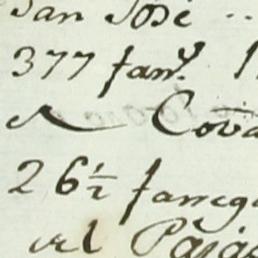 San José ..
377 fan.s 1
el Cova
26½ faneg
el Pajas